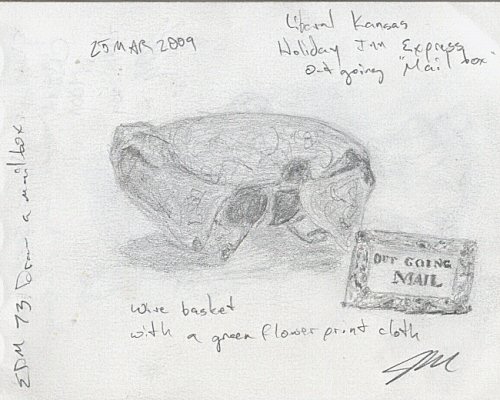 25 MAR 2009
Liberal Kansas
Holiday Inn Express
Out going "Mail box".
EDM 73 Draw a mail box.
OUT GOING
MAIL
wire basket
with a green flower print cloth